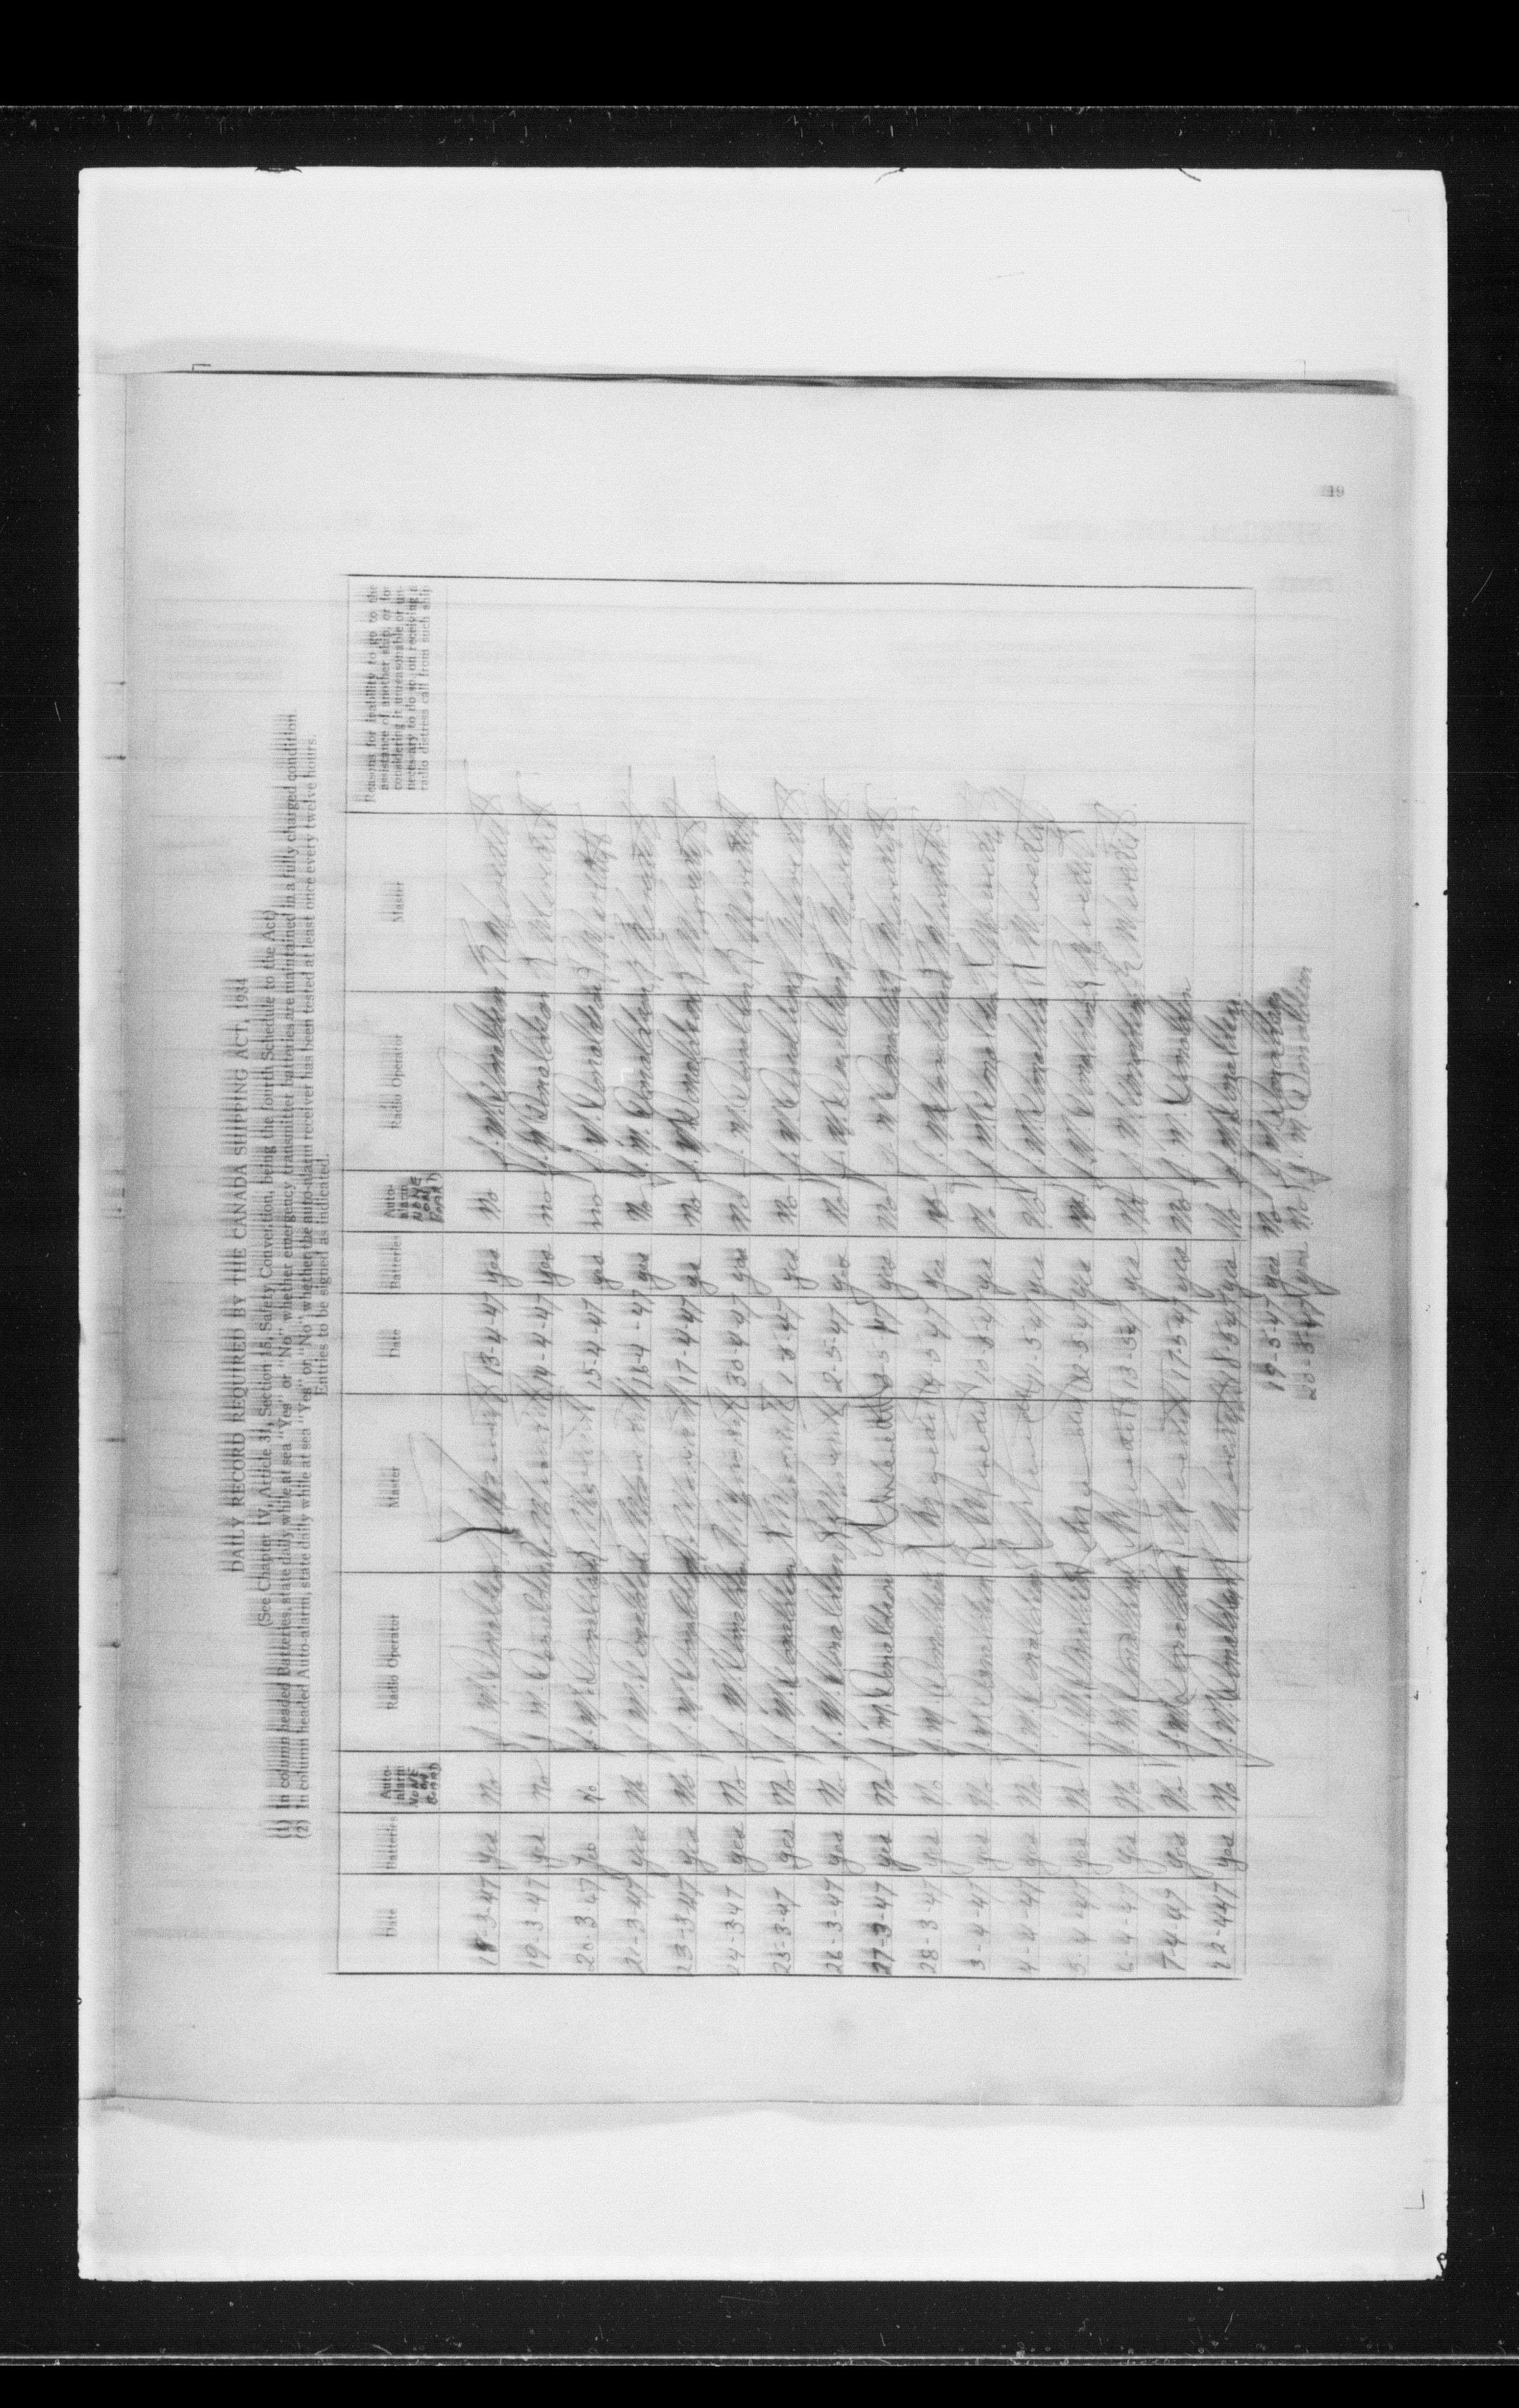 19
DAILY RECORD REQUIRED BY THE CANADA SHIPPING ACT, 1934
(See Chapter IV, Article 31, Section 18, Safety Convention, being the fourth Schedule to the Act)
(1) In column headed Batteries, state daily while at sea "Yes" or "No" whether emergency transmitter batteries are maintained in a fully charged condition.
(2) In column headed Auto-alarm, state daily while at sea "Yes" or "No" whether the auto-alarm receiver has been tested at least once every twelve hours.
Entries to be signed as indicated.
Date Batteries Auto-alarm NONE ON BOARD Radio Operator Master Date Batteries Auto-alarm NONE ON BOARD Radio Operator Master Reasons for inability to go to the assistance of another ship, or for considering it unreasonable or unnecessary to do so, on receiving a radio distress call from such ship
18-3-47 yes No J. M. Donaldson 13-4-47 yes No J. M. Donaldson R Meredith
19-3-47 yes No J. M. Donaldson R Meredith 14-4-47 yes no J. M. Donaldson R Meredith
20-3-47 yes No J. M. Donaldson R Meredith 15-4-47 yes no J. M. Donaldson R Meredith
21-3-47 yes No J. M. Donaldson R Meredith 16-4-47 yes No J. M. Donaldson R Meredith
23-3-47 yes No J. M. Donaldson R Meredith 17-4-47 ye No J. M. Donaldson R Meredith
24-3-47 yes No J. M. Donaldson R Meredith 30-4-47 yes No J. M. Donaldson R Meredith
25-3-47 yes No J. M. Donaldson R Meredith 1-5-47 yes No J. M. Donaldson R Meredith
26-3-47 yes No J. M. Donaldson R Meredith 2-5-47 yes No J. M. Donaldson R Meredith
27-3-47 yes No J. M. Donaldson R Meredith 3-5-47 yes No J. M. Donaldson R Meredith
28-3-47 yes No J. M. Donaldson R Meredith 4-5-47 yes No J. M. Donaldson R Meredith
3-4-47 yes No J. M. Donaldson R Meredith 10-5-47 yes No J. M. Donaldson R Meredith
4-4-47 yes No J. M. Donaldson R Meredith 11-5-47 yes No J. M. Donaldson R Meredith
5-4-47 yes No J. M. Donaldson R Meredith 12-5-47 yes No J. M. Donaldson R Meredith
6-4-47 yes No J. M. Donaldson R Meredith 13-5-47 yes No J. M. Donaldson R Meredith
7-4-47 yes No J. M. Donaldson R Meredith 17-5-47 yes No J. M. Donaldson
12-4-47 yes No J. M. Donaldson R Meredith 18-5-47 yes No J. M. Donaldson
19-5-47 yes No J. M. Donaldson
20-5-47 yes No J. M. Donaldson